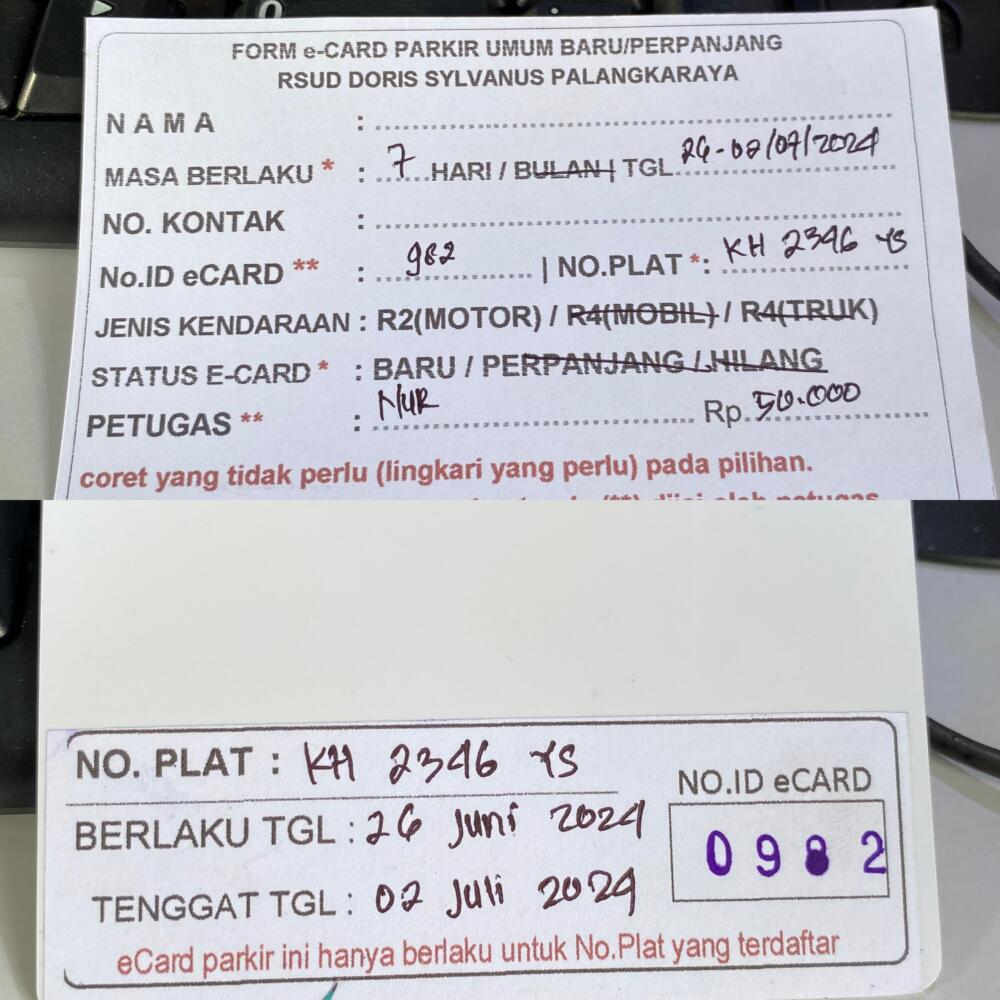 FORM e-CARD PARKIR UMUM BARU/PERPANJANG
RSUD DORIS SYLVANUS PALANGKARAYA
NAMA :
MASA BERLAKU * : 7 HARI / BULAN | TGL. 26-02/07/2024
NO. KONTAK :
No.ID eCARD ** : 982 | NO.PLAT *: KH 2346 YS
JENIS KENDARAAN : R2(MOTOR) / R4(MOBIL) / R4(TRUK)
STATUS E-CARD * : BARU / PERPANJANG / HILANG
PETUGAS ** : NUR Rp. 50.000
coret yang tidak perlu (lingkari yang perlu) pada pilihan.
NO. PLAT : KH 2346 YS
BERLAKU TGL : 26 Juni 2024
TENGGAT TGL : 02 Juli 2024
NO.ID eCARD
0982
eCard parkir ini hanya berlaku untuk No.Plat yang terdaftar